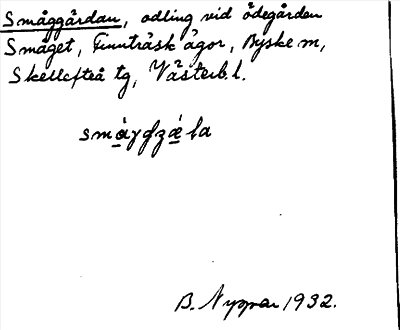 Småggårdan, odling vid ödegården
Småget, Finnträsk ägor, Byske m,
Skellefteå tg, Västerb. l.
B. Nyman 1932.